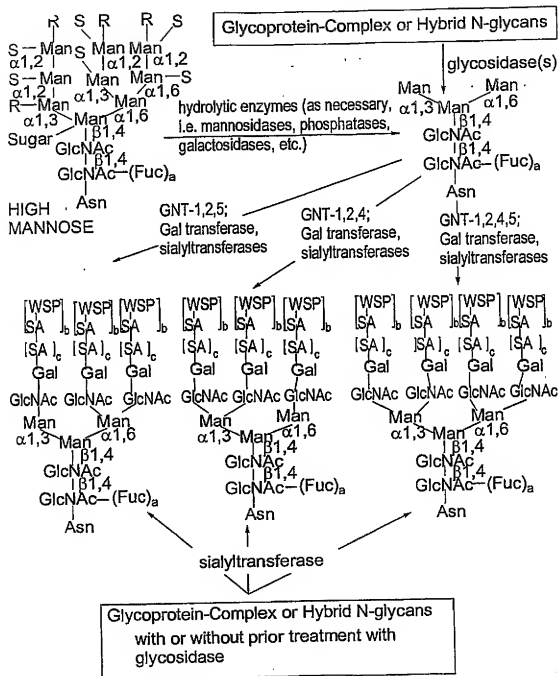 R S R R S
S—Man S Man Man
α1,2 α1,2 α1,2
S—Man Man Man—S
α1,2 α1,3 α1,6
R—Man Man
α1,3 α1,6
Man
Sugar β1,4
GlcNAc
β1,4
GlcNAc—(Fuc)a
Asn
HIGH
MANNOSE
hydrolytic enzymes (as necessary,
i.e. mannosidases, phosphatases,
galactosidases, etc.)
Glycoprotein-Complex or Hybrid N-glycans
glycosidase(s)
Man Man
α1,3 Man α1,6
β1,4
GlcNAc
β1,4
GlcNAc—(Fuc)a
Asn
GNT-1,2,5;
Gal transferase,
sialyltransferases
GNT-1,2,4;
Gal transferase,
sialyltransferases
GNT-1,2,4,5;
Gal transferase,
sialyltransferases
[WSP]b [WSP]b [WSP]b
SA SA SA
[SA]c [SA]c [SA]c
Gal Gal Gal
GlcNAc GlcNAc GlcNAc
Man Man
α1,3 Man α1,6
β1,4
GlcNAc
β1,4
GlcNAc—(Fuc)a
Asn
[WSP]b [WSP]b [WSP]b
SA SA SA
[SA]c [SA]c [SA]c
Gal Gal Gal
GlcNAc GlcNAc GlcNAc
Man Man
α1,3 Man α1,6
β1,4
GlcNAc
β1,4
GlcNAc—(Fuc)a
Asn
[WSP]b [WSP]b [WSP]b [WSP]b
SA SA SA SA
[SA]c [SA]c [SA]c [SA]c
Gal Gal Gal Gal
GlcNAc GlcNAc GlcNAc GlcNAc
Man Man
α1,3 Man α1,6
β1,4
GlcNAc
β1,4
GlcNAc—(Fuc)a
Asn
sialyltransferase
Glycoprotein-Complex or Hybrid N-glycans
with or without prior treatment with
glycosidase